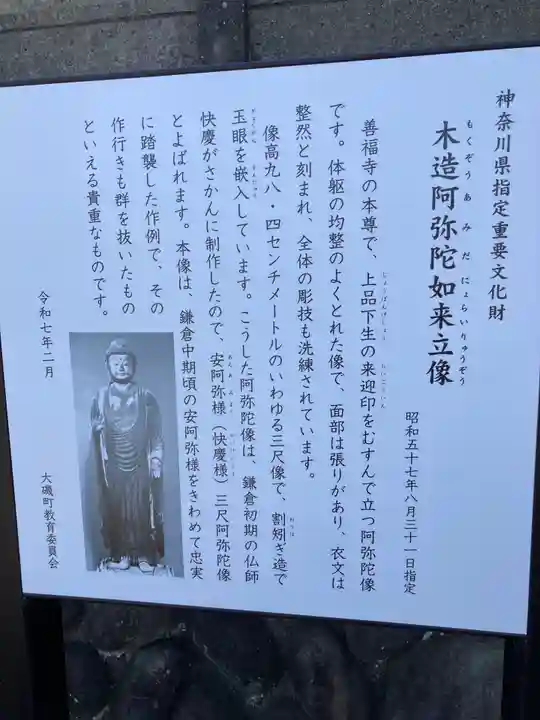 神奈川県指定重要文化財
木造阿弥陀如来立像
もくぞうあみだにょらいりゅうぞう
昭和五十七年八月三十一日指定
善福寺の本尊で、上品下生の来迎印をむすんで立つ阿弥陀像
じょうぼんげしょう
らいごういん
です。体躯の均整のよくとれた像で、面部は張りがあり、衣文は
整然と刻まれ、全体の彫技も洗練されています。
像高九八・四センチメートルのいわゆる三尺像で、割矧ぎ造で
玉眼を嵌入しています。こうした阿弥陀像は、鎌倉初期の仏師
ぎょくがん
かんにゅう
快慶がさかんに制作したので、安阿弥様（快慶様）三尺阿弥陀像
あんあみよう
とよばれます。本像は、鎌倉中期頃の安阿弥様をきわめて忠実
に踏襲した作例で、その
作行きも群を抜いたもの
といえる貴重なものです。
令和七年二月
大磯町教育委員会